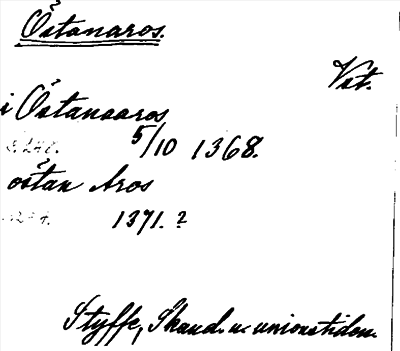 Östanaros.
Vst.
i Östanaaros
5/10 1368.
östan Aros
1371. ?
Styffe, Skand. u. unionstiden.